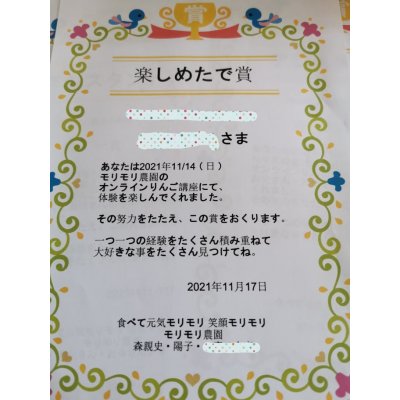 賞
楽しめたで賞
さま
あなたは2021年11/14（日）
モリモリ農園の
オンラインりんご講座にて、
体験を楽しんでくれました。
その努力をたたえ、この賞をおくります。
一つ一つの経験をたくさん積み重ねて
大好きな事をたくさん見つけてね。
2021年11月17日
食べて元気モリモリ 笑顔モリモリ
モリモリ農園
森親史・陽子・